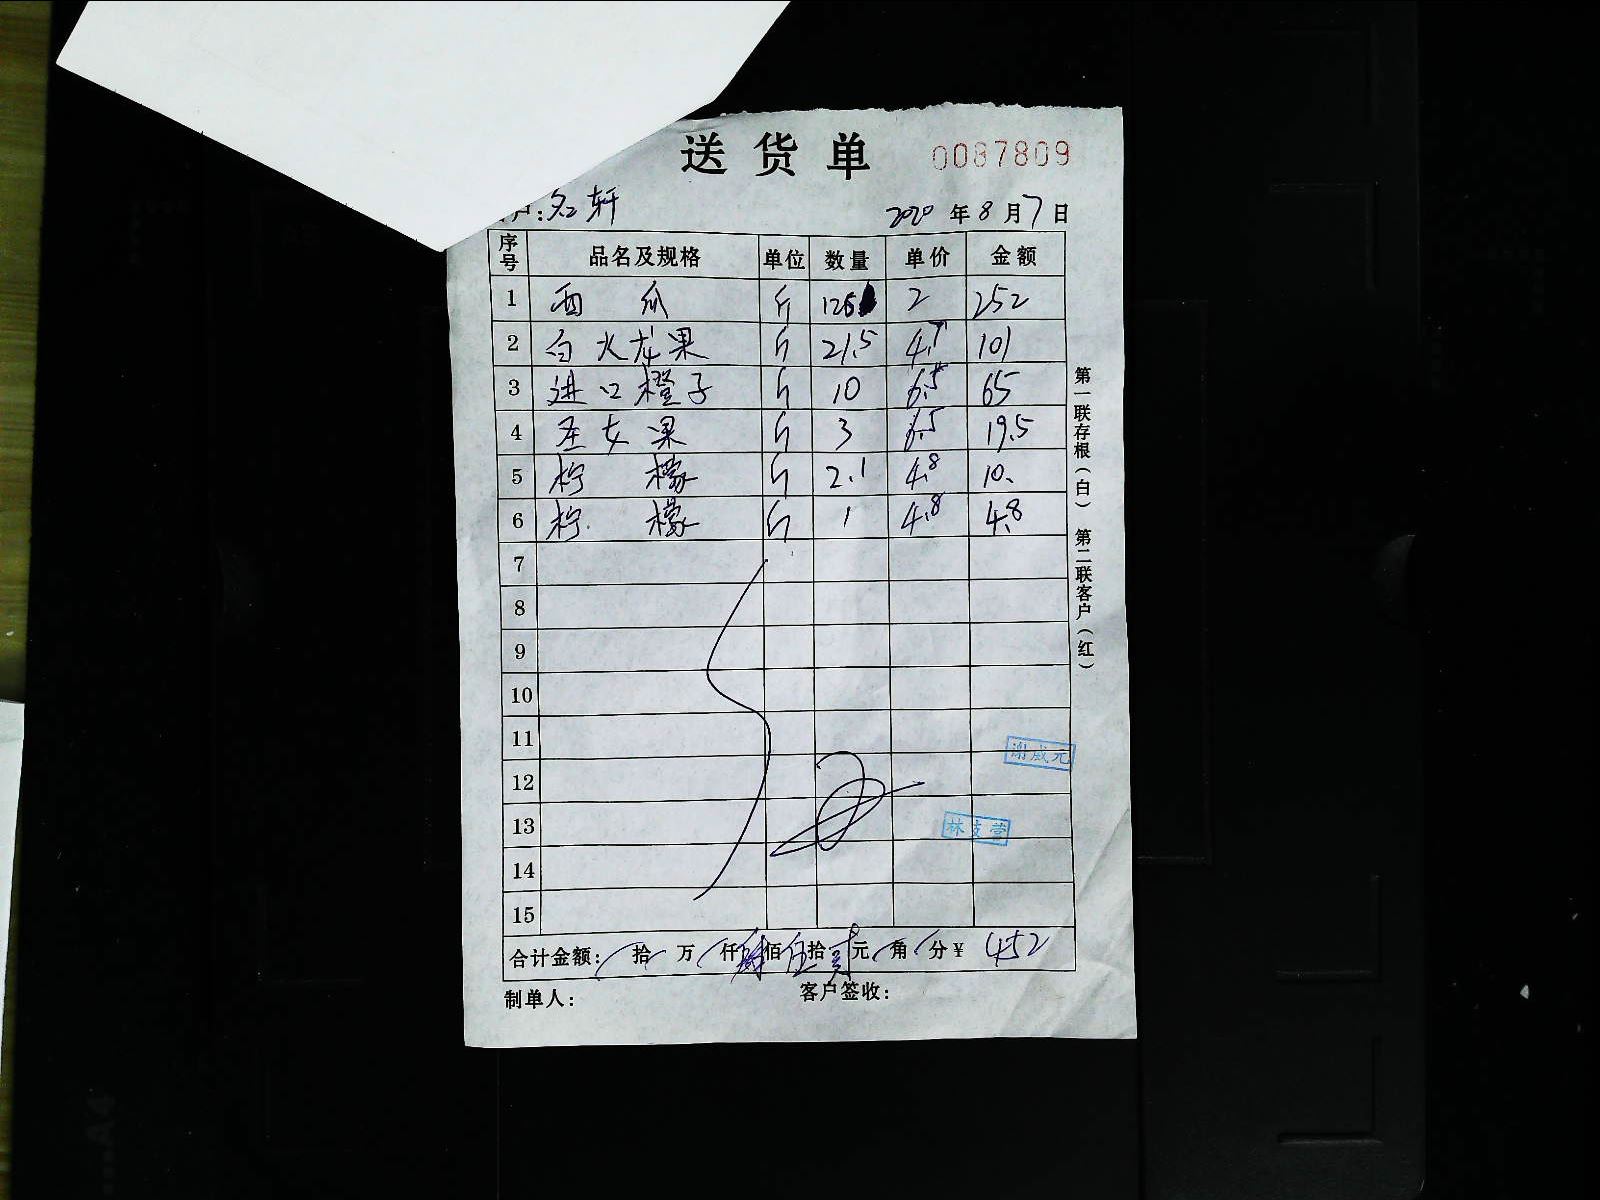 送货单 0087809
户: 名轩 2020 年 8 月 7 日
序号 品名及规格 单位 数量 单价 金额
1 西瓜 斤 126 2 252
2 白火龙果 斤 21.5 4.7 101
3 进口橙子 斤 10 6.5 65
4 圣女果 斤 3 6.5 19.5
5 柠檬 斤 2.1 4.8 10.
6 柠檬 斤 1 4.8 4.8
7
8
9
10
11
谢咸元
12
13 林支营
14
15
合计金额: 拾 万 仟 肆 佰 伍 拾 贰 元 角 分 ¥ 452
制单人: 客户签收:
第一联存根(白) 第二联客户(红)